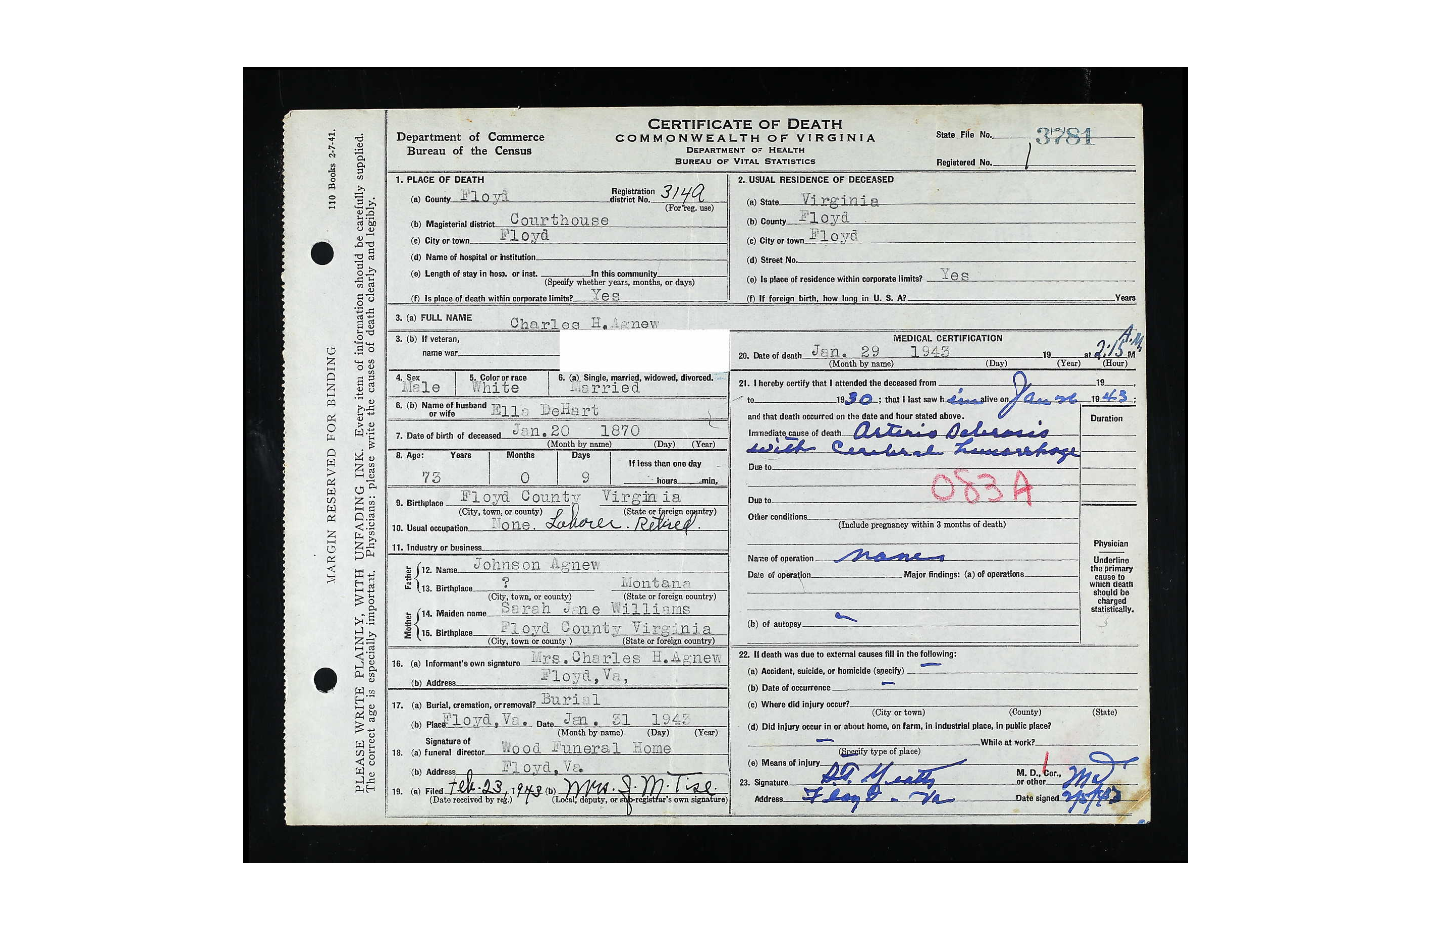 110 Books 2-7-41.
MARGIN RESERVED FOR BINDING
PLEASE WRITE PLAINLY, WITH UNFADING INK. Every item of information should be carefully supplied.
The correct age is especially important. Physicians: please write the causes of death clearly and legibly.
Department of Commerce
Bureau of the Census
CERTIFICATE OF DEATH
COMMONWEALTH OF VIRGINIA
DEPARTMENT OF HEALTH
BUREAU OF VITAL STATISTICS
State File No. 3781
Registered No. 1
1. PLACE OF DEATH
(a) County Floyd Registration district No. 3149
(For reg. use)
(b) Magisterial district Courthouse
(c) City or town Floyd
(d) Name of hospital or institution
(e) Length of stay in hosp. or inst. In this community
(Specify whether years, months, or days)
(f) Is place of death within corporate limits? Yes
2. USUAL RESIDENCE OF DECEASED
(a) State Virginia
(b) County Floyd
(c) City or town Floyd
(d) Street No.
(e) Is place of residence within corporate limits? Yes
(f) If foreign birth, how long in U. S. A? Years
3. (a) FULL NAME Charles H. Agnew
3. (b) If veteran,
name war
4. Sex Male 5. Color or race White 6. (a) Single, married, widowed, divorced. Married
6. (b) Name of husband or wife Ella DeHart
7. Date of birth of deceased Jan. 20 1870
(Month by name) (Day) (Year)
8. Age: Years Months Days If less than one day
73 0 9 hours min.
9. Birthplace Floyd County Virginia
(City, town, or county) (State or foreign country)
10. Usual occupation None. Laborer. Retired.
11. Industry or business
Father
12. Name Johnson Agnew
13. Birthplace ? Montana
(City, town, or county) (State or foreign country)
Mother
14. Maiden name Sarah Jane Williams
15. Birthplace Floyd County Virginia
(City, town or county) (State or foreign country)
16. (a) Informant's own signature Mrs. Charles H. Agnew
(b) Address Floyd, Va,
17. (a) Burial, cremation, or removal? Burial
(b) Place Floyd, Va. Date Jan. 31 1943
(Month by name) (Day) (Year)
18. (a) Signature of funeral director Wood Funeral Home
(b) Address Floyd, Va.
19. (a) Filed Feb. 23, 1943 (b) Mrs. J. M. Tise.
(Date received by reg.) (Local, deputy, or sub-registrar's own signature)
MEDICAL CERTIFICATION
20. Date of death Jan. 29 1943 19 at 2:15 A.M M
(Month by name) (Day) (Year) (Hour)
21. I hereby certify that I attended the deceased from 19
to 1930; that I last saw him alive on Jan 1943;
and that death occurred on the date and hour stated above.
Duration
Immediate cause of death Arterio Sclerosis
with Cerebral hemorrhage
Due to
083A
Due to
Other conditions
(Include pregnancy within 3 months of death)
Name of operation none
Date of operation Major findings: (a) of operations
(b) of autopsy
Physician
Underline the primary cause to which death should be charged statistically.
22. If death was due to external causes fill in the following:
(a) Accident, suicide, or homicide (specify)
(b) Date of occurrence
(c) Where did injury occur?
(City or town) (County) (State)
(d) Did injury occur in or about home, on farm, in industrial place, in public place?
While at work?
(Specify type of place)
(e) Means of injury
23. Signature M. D., Cor., or other MD
Address Floyd. Va Date signed